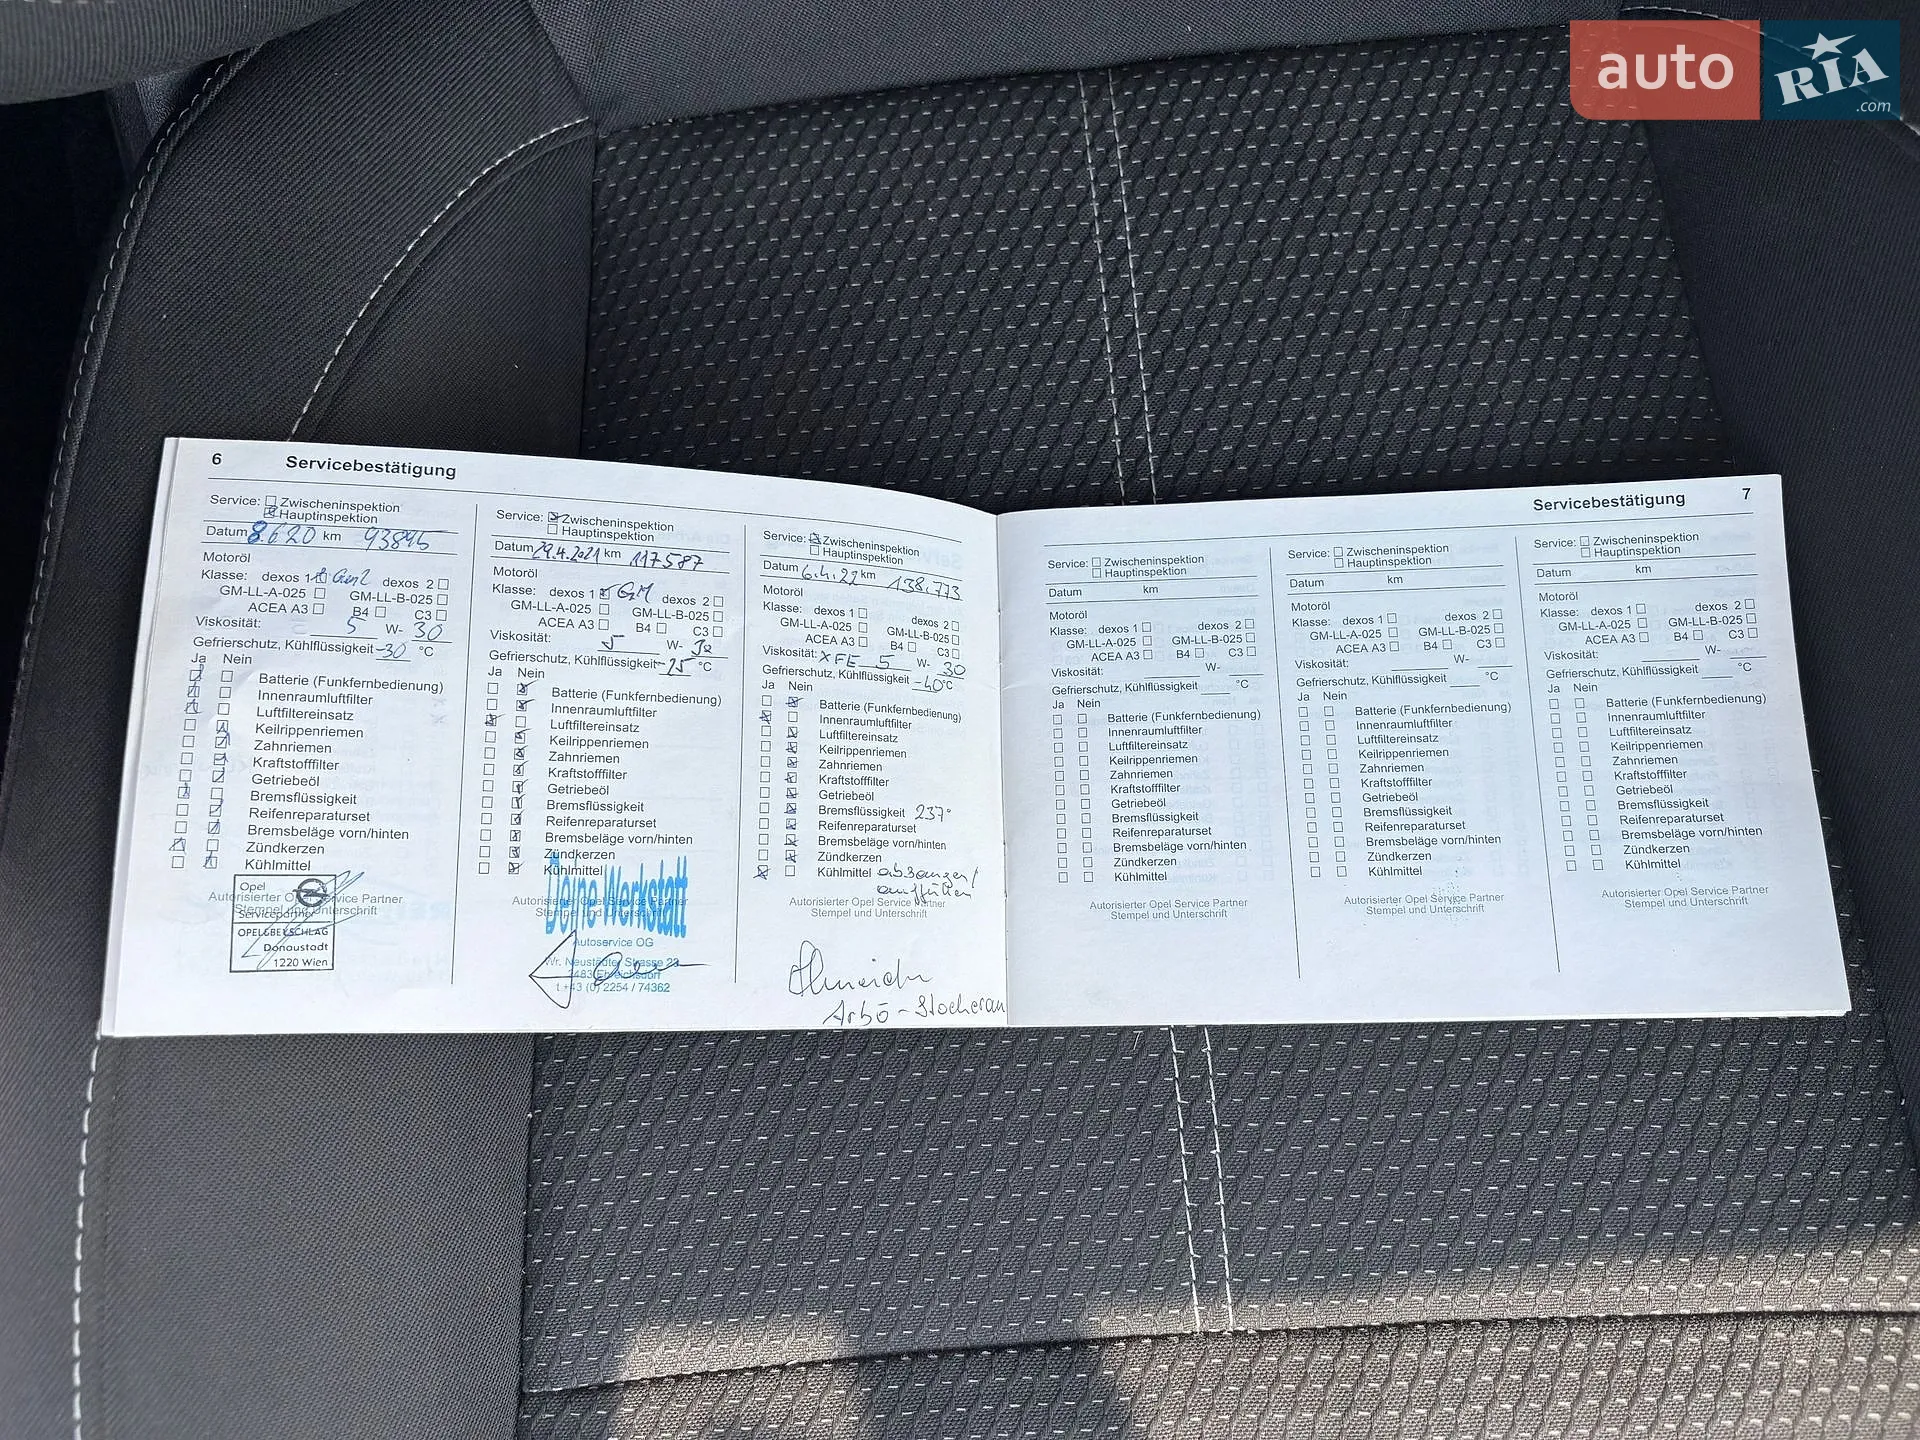 auto RIA .com
6 Servicebestätigung
Service: Zwischeninspektion
Hauptinspektion
Datum 8.6.20 km 93895
Motoröl
Klasse: dexos 1 Gen2 dexos 2
GM-LL-A-025 GM-LL-B-025
ACEA A3 B4 C3
Viskosität: 5 W- 30
Gefrierschutz, Kühlflüssigkeit -30 °C
Ja Nein
Batterie (Funkfernbedienung)
Innenraumluftfilter
Luftfiltereinsatz
Keilrippenriemen
Zahnriemen
Kraftstofffilter
Getriebeöl
Bremsflüssigkeit
Reifenreparaturset
Bremsbeläge vorn/hinten
Zündkerzen
Kühlmittel
Autorisierter Opel Service Partner
Stempel und Unterschrift
Opel
Servicepartner
OPEL&BEYSCHLAG
Donaustadt
1220 Wien
Service: Zwischeninspektion
Hauptinspektion
Datum 29.4.2021 km 117587
Motoröl
Klasse: dexos 1 GM dexos 2
GM-LL-A-025 GM-LL-B-025
ACEA A3 B4 C3
Viskosität: 5 W- 30
Gefrierschutz, Kühlflüssigkeit -25 °C
Ja Nein
Batterie (Funkfernbedienung)
Innenraumluftfilter
Luftfiltereinsatz
Keilrippenriemen
Zahnriemen
Kraftstofffilter
Getriebeöl
Bremsflüssigkeit
Reifenreparaturset
Bremsbeläge vorn/hinten
Zündkerzen
Kühlmittel
Autorisierter Opel Service Partner
Stempel und Unterschrift
Deine Werkstatt
Autoservice OG
Wr. Neustädter Strasse 23
2483 Ebreichsdorf
t +43 (0) 2254 / 74362
Service: Zwischeninspektion
Hauptinspektion
Datum 6.4.22 km 138.773
Motoröl
Klasse: dexos 1 dexos 2
GM-LL-A-025 GM-LL-B-025
ACEA A3 B4 C3
Viskosität: XFE 5 W- 30
Gefrierschutz, Kühlflüssigkeit -40 °C
Ja Nein
Batterie (Funkfernbedienung)
Innenraumluftfilter
Luftfiltereinsatz
Keilrippenriemen
Zahnriemen
Kraftstofffilter
Getriebeöl
Bremsflüssigkeit 237°
Reifenreparaturset
Bremsbeläge vorn/hinten
Zündkerzen
Kühlmittel absaugen/
auffüllen
Autorisierter Opel Service Partner
Stempel und Unterschrift
Arbö - Stockerau
Servicebestätigung 7
Service: Zwischeninspektion
Hauptinspektion
Datum km
Motoröl
Klasse: dexos 1 dexos 2
GM-LL-A-025 GM-LL-B-025
ACEA A3 B4 C3
Viskosität: W-
Gefrierschutz, Kühlflüssigkeit °C
Ja Nein
Batterie (Funkfernbedienung)
Innenraumluftfilter
Luftfiltereinsatz
Keilrippenriemen
Zahnriemen
Kraftstofffilter
Getriebeöl
Bremsflüssigkeit
Reifenreparaturset
Bremsbeläge vorn/hinten
Zündkerzen
Kühlmittel
Autorisierter Opel Service Partner
Stempel und Unterschrift
Service: Zwischeninspektion
Hauptinspektion
Datum km
Motoröl
Klasse: dexos 1 dexos 2
GM-LL-A-025 GM-LL-B-025
ACEA A3 B4 C3
Viskosität: W-
Gefrierschutz, Kühlflüssigkeit °C
Ja Nein
Batterie (Funkfernbedienung)
Innenraumluftfilter
Luftfiltereinsatz
Keilrippenriemen
Zahnriemen
Kraftstofffilter
Getriebeöl
Bremsflüssigkeit
Reifenreparaturset
Bremsbeläge vorn/hinten
Zündkerzen
Kühlmittel
Autorisierter Opel Service Partner
Stempel und Unterschrift
Service: Zwischeninspektion
Hauptinspektion
Datum km
Motoröl
Klasse: dexos 1 dexos 2
GM-LL-A-025 GM-LL-B-025
ACEA A3 B4 C3
Viskosität: W-
Gefrierschutz, Kühlflüssigkeit °C
Ja Nein
Batterie (Funkfernbedienung)
Innenraumluftfilter
Luftfiltereinsatz
Keilrippenriemen
Zahnriemen
Kraftstofffilter
Getriebeöl
Bremsflüssigkeit
Reifenreparaturset
Bremsbeläge vorn/hinten
Zündkerzen
Kühlmittel
Autorisierter Opel Service Partner
Stempel und Unterschrift